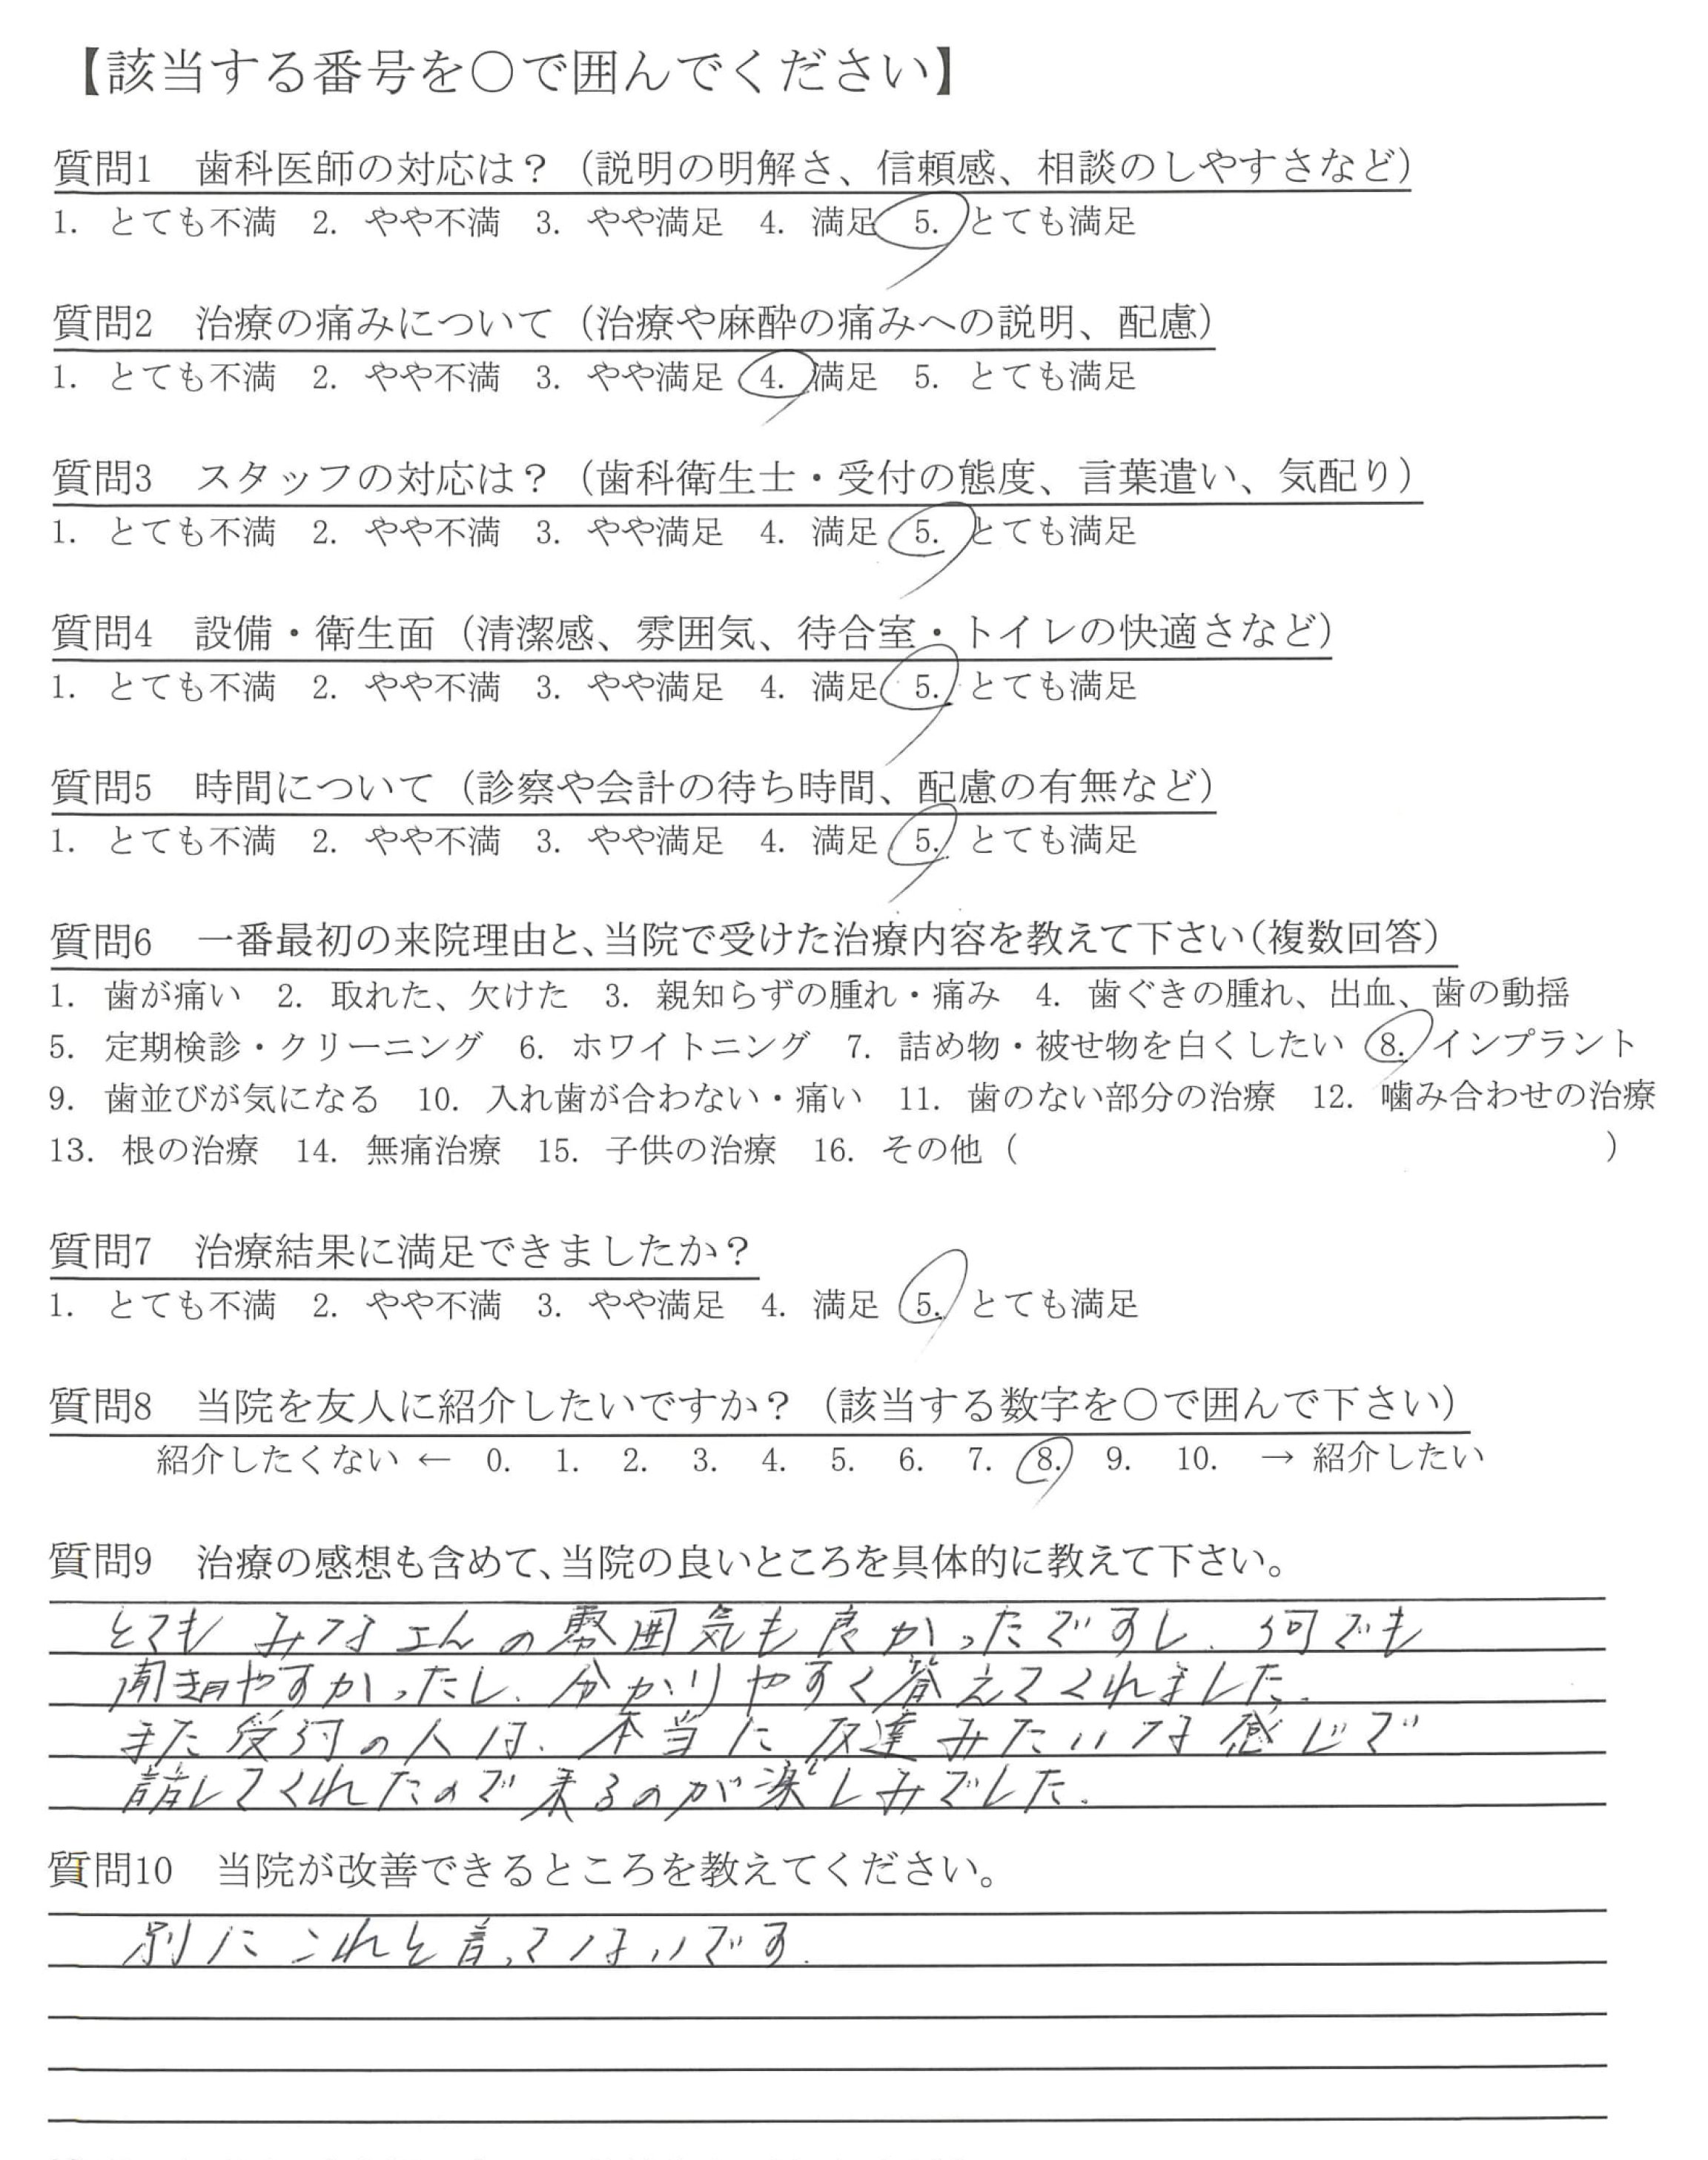 【該当する番号を○で囲んでください】
質問1　歯科医師の対応は？（説明の明解さ、信頼感、相談のしやすさなど）
1. とても不満　2. やや不満　3. やや満足　4. 満足　5. とても満足
質問2　治療の痛みについて（治療や麻酔の痛みへの説明、配慮）
1. とても不満　2. やや不満　3. やや満足　4. 満足　5. とても満足
質問3　スタッフの対応は？（歯科衛生士・受付の態度、言葉遣い、気配り）
1. とても不満　2. やや不満　3. やや満足　4. 満足　5. とても満足
質問4　設備・衛生面（清潔感、雰囲気、待合室・トイレの快適さなど）
1. とても不満　2. やや不満　3. やや満足　4. 満足　5. とても満足
質問5　時間について（診察や会計の待ち時間、配慮の有無など）
1. とても不満　2. やや不満　3. やや満足　4. 満足　5. とても満足
質問6　一番最初の来院理由と、当院で受けた治療内容を教えて下さい（複数回答）
1. 歯が痛い　2. 取れた、欠けた　3. 親知らずの腫れ・痛み　4. 歯ぐきの腫れ、出血、歯の動揺
5. 定期検診・クリーニング　6. ホワイトニング　7. 詰め物・被せ物を白くしたい　8. インプラント
9. 歯並びが気になる　10. 入れ歯が合わない・痛い　11. 歯のない部分の治療　12. 噛み合わせの治療
13. 根の治療　14. 無痛治療　15. 子供の治療　16. その他（　　　　　　　　　　）
質問7　治療結果に満足できましたか？
1. とても不満　2. やや不満　3. やや満足　4. 満足　5. とても満足
質問8　当院を友人に紹介したいですか？（該当する数字を○で囲んで下さい）
紹介したくない ← 0. 1. 2. 3. 4. 5. 6. 7. 8. 9. 10. → 紹介したい
質問9　治療の感想も含めて、当院の良いところを具体的に教えて下さい。
とても みなさんの雰囲気も良かったですし、何でも
聞きやすかったし、分かりやすく答えてくれました。
また受付の人は、本当に友達みたいな感じで
話してくれたので来るのが楽しみでした。
質問10　当院が改善できるところを教えてください。
別にこれと言ってないです。